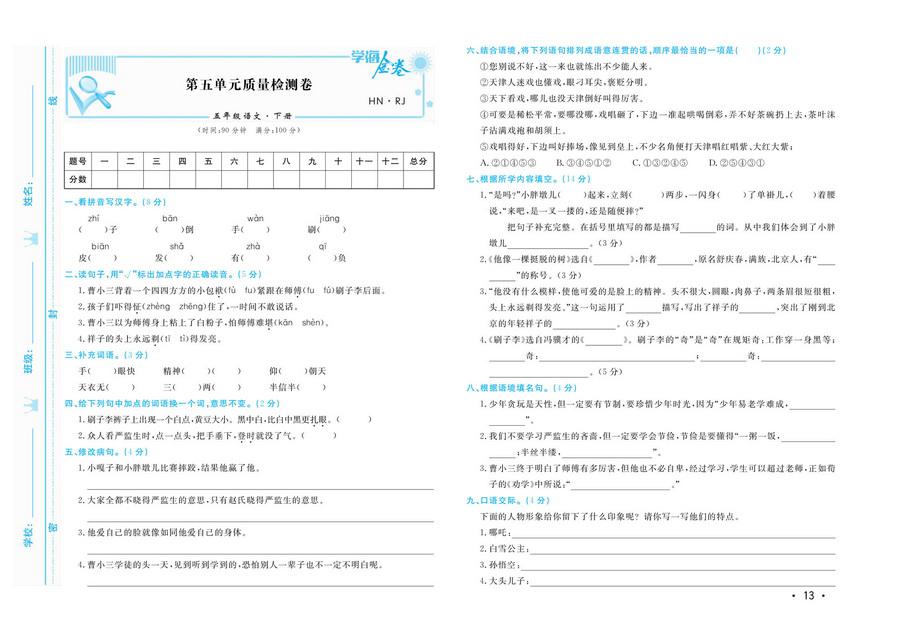 学海金卷
第五单元质量检测卷
HN·RJ
五年级语文·下册
(时间:90分钟 满分:100分)
题号 一 二 三 四 五 六 七 八 九 十 十一 十二 总分
分数
学校: 班级: 姓名:
密 封 线
一、看拼音写汉字。(8分)
zhí bān wàn jiāng
( )子 ( )倒 手( ) 刷( )
biān shā zhà qī
皮( ) 发( ) 有( ) ( )负
二、读句子,用“√”标出加点字的正确读音。(5分)
1.曹小三背着一个四四方方的小包袱(fú fu)紧跟在师傅(fu fú)刷子李后面。
2.孩子们吓得怔(zhèng zhēng)住了,一时间不敢说话。
3.曹小三以为师傅身上粘上了白粉子,怕师傅难堪(kān shèn)。
4.祥子的头上永远剃(tī tì)得发亮。
三、补充词语。(3分)
手( )眼快 精神( )( ) 仰( )朝天
天衣无( ) 三( )两( ) 半信半( )
四、给下列句中加点的词语换一个词,意思不变。(2分)
1.刷子李裤子上出现一个白点,黄豆大小。黑中白,比白中黑更扎眼。( )
2.众人看严监生时,点一点头,把手垂下,登时就没了气。( )
五、修改病句。(4分)
1.小嘎子和小胖墩儿比赛摔跤,结果他赢了他。
2.大家全都不晓得严监生的意思,只有赵氏晓得严监生的意思。
3.他爱自己的脸就像如同他爱自己的身体。
4.曹小三学徒的头一天,见到听到学到的,恐怕别人一辈子也不一定不明白呢。
六、结合语境,将下列语句排列成语意连贯的话,顺序最恰当的一项是( )(2分)
①您别说不好,这一来也就练出不少能人来。
②天津人迷戏也懂戏,眼刁耳尖,褒贬分明。
③天下看戏,哪儿也没天津倒好叫得厉害。
④可要是稀松平常,要哪没哪,戏唱砸了,下边一准起哄喝倒彩,弄不好茶碗扔上去,茶叶沫
子沾满戏袍和胡须上。
⑤戏唱得好,下边叫好捧场,像见到皇上,不少名角便打天津唱红唱紫、大红大紫;
A.②①④⑤③ B.③④⑤①② C.①③②④⑤ D.②⑤④③①
七、根据所学内容填空。(14分)
1.“是吗?”小胖墩儿( )起来,立刻( )两步,一闪身( )了单褂儿,( )着腰
说,“来吧,是一叉一搂的,还是随便摔?”
把句子补充完整。在括号里填写的都是描写 的词。从中我们体会到了小胖
墩儿 。(3分)
2.《他像一棵挺脱的树》选自《 》,作者 ,原名舒庆春,满族,北京人,有“
”的称号。(3分)
3.“他没有什么模样,使他可爱的是脸上的精神。头不很大,圆眼,肉鼻子,两条眉很短很粗,
头上永远剃得发亮。”这一句运用了 描写,写出了祥子的 ,突出了刚到北
京的年轻祥子的 。(3分)
4.《刷子李》选自冯骥才的《 》。刷子李的“奇”是“奇”在规矩奇;工作穿一身黑等;
奇: ; 奇:
。(5分)
八、根据语境填名句。(4分)
1.少年贪玩是天性,但一定要有节制,要珍惜少年时光,因为“少年易老学难成,
”。
2.我们不要学习严监生的吝啬,但一定要学会节俭,节俭是要懂得“一粥一饭,
;半丝半缕, ”。
3.曹小三终于明白了师傅有多厉害,但他也不必自卑,经过学习,学生可以超过老师,正如荀
子的《劝学》中所说:“ 。”
九、口语交际。(4分)
下面的人物形象给你留下了什么印象呢?请你写一写他们的特点。
1.哪吒:
2.白雪公主:
3.孙悟空:
4.大头儿子:
·13·